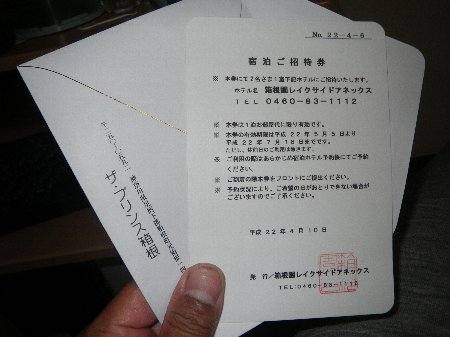 No. 22-4-6
宿泊ご招待券
※ 本券にて2名さま1室下記ホテルにご招待いたします。
ホテル名 箱根園レイクサイドアネックス
TEL 0460-83-1112
※ 本券は1泊お部屋代に限り有効です。
※ 本券の有効期限は平成22年5月5日より
平成22年7月16日までです。
ただし、休前日のご利用は除きます。
※ ご利用の際はあらかじめ宿泊ホテル予約係にてご予約
ください。
※ ご到着の際本券をフロントにご提出ください。
※ 予約状況により、ご希望の日がおとりできない場合が
ございますのでご了承ください。
平成22年4月10日
発行/箱根園レイクサイドアネックス
TEL:0460-83-1112
ザ・プリンス箱根